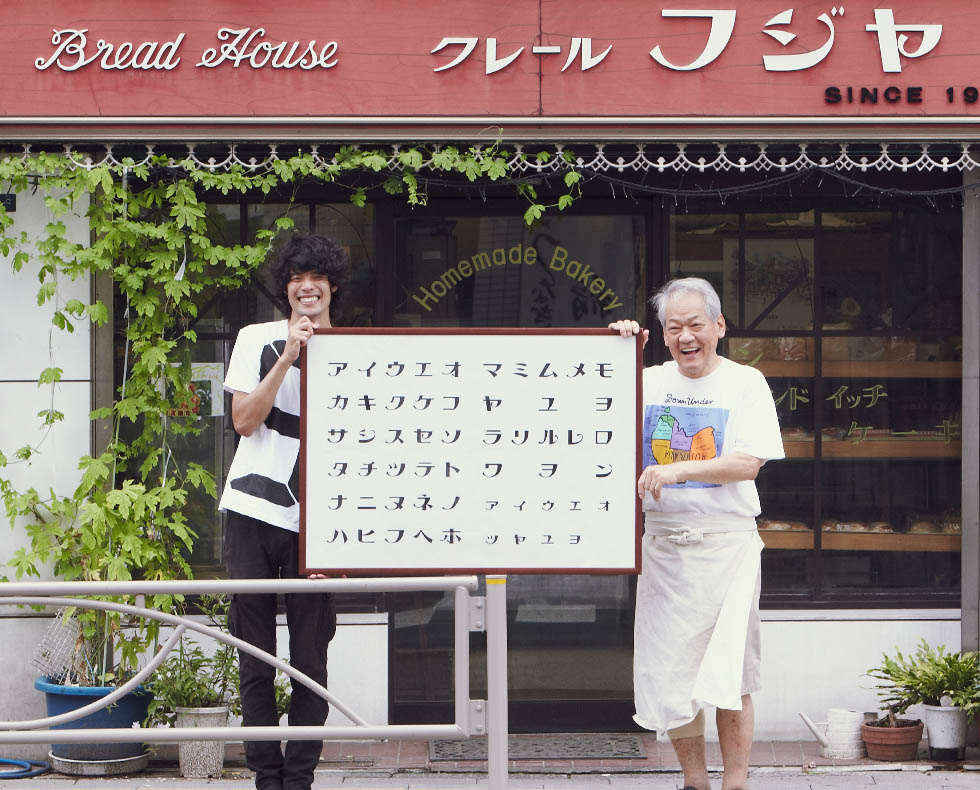 Bread House クレール フジヤ
SINCE 19
Homemade Bakery
アイウエオ マミムメモ
カキクケコ ヤユヨ
サシスセソ ラリルレロ
タチツテト ワヲン
ナニヌネノ ァィゥェォ
ハヒフヘホ ッャュョ
Down Under
ドイッチ
ケーキ